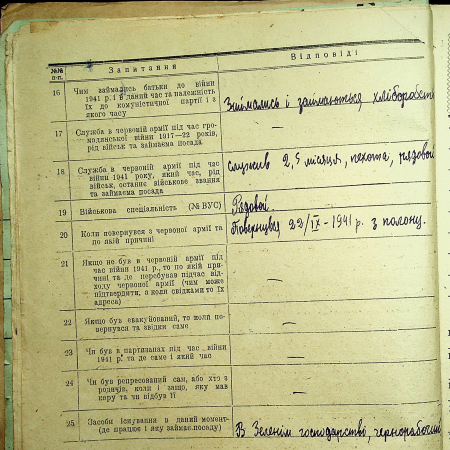 №№ п-п.
Запитання
Відповіді
16 Чим займались батьки до війни
1941 р. і в даний час та належність
їх до комуністичної партії і з
якого часу
Займались і займаються хліборобств
17 Служба в червоній армії під час гро-
мадянської війни 1917—22 років,
рід військ та займаєма посада
—
18 Служба в червоній армії під час
війни 1941 року, який час, рід
військ, останнє військове звання
та займаєма посада
служив 2,5 місяця, пехота, рядовой
19 Військова спеціальність (№ ВУС)
Рядовой
20 Коли повернувся з червоної армії та
по якій причині
Повернувся 22/IX - 1941 р. з полону.
21 Якщо не був в червоній армії під
час війни 1941 р., то по якій при-
чині та де перебував підчас від-
ходу червоної армії (чим може
підтвердити, а коли свідками то їх
адреса)
—
22 Якщо був евакуйований, то коли по-
вернувся та звідки саме
—
23 Чи був в партизанах під час війни
1941 р. та де саме і який час
—
24 Чи був репресований сам, або хто з
родичів, коли і защо, яку мав
кару та чи відбув її
—
25 Засоби існування в даний момент-
(де працює і яку займає посаду)
В Зеленім господарстві, чернорабочий